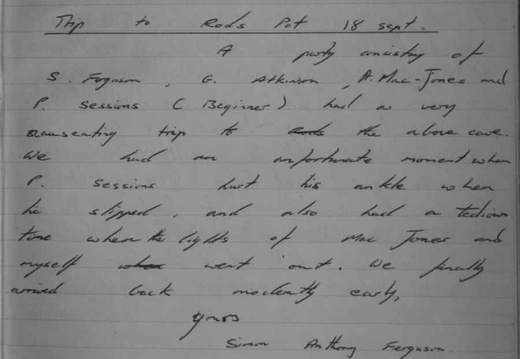 Trip to Rods Pot 18 sept.
A party consisting of
S. Ferguson, G. Atkinson, A. Mac-Jones and
P. Sessions (Beginner) had a very
nauseating trip to the above cave.
We had an unfortunate moment when
P. Sessions hurt his ankle when
he slipped, and also had a tedious
time when the lights of Mac Jones and
myself went out. We finally
arrived back moderately early,
Yours
Simon Anthony Ferguson.